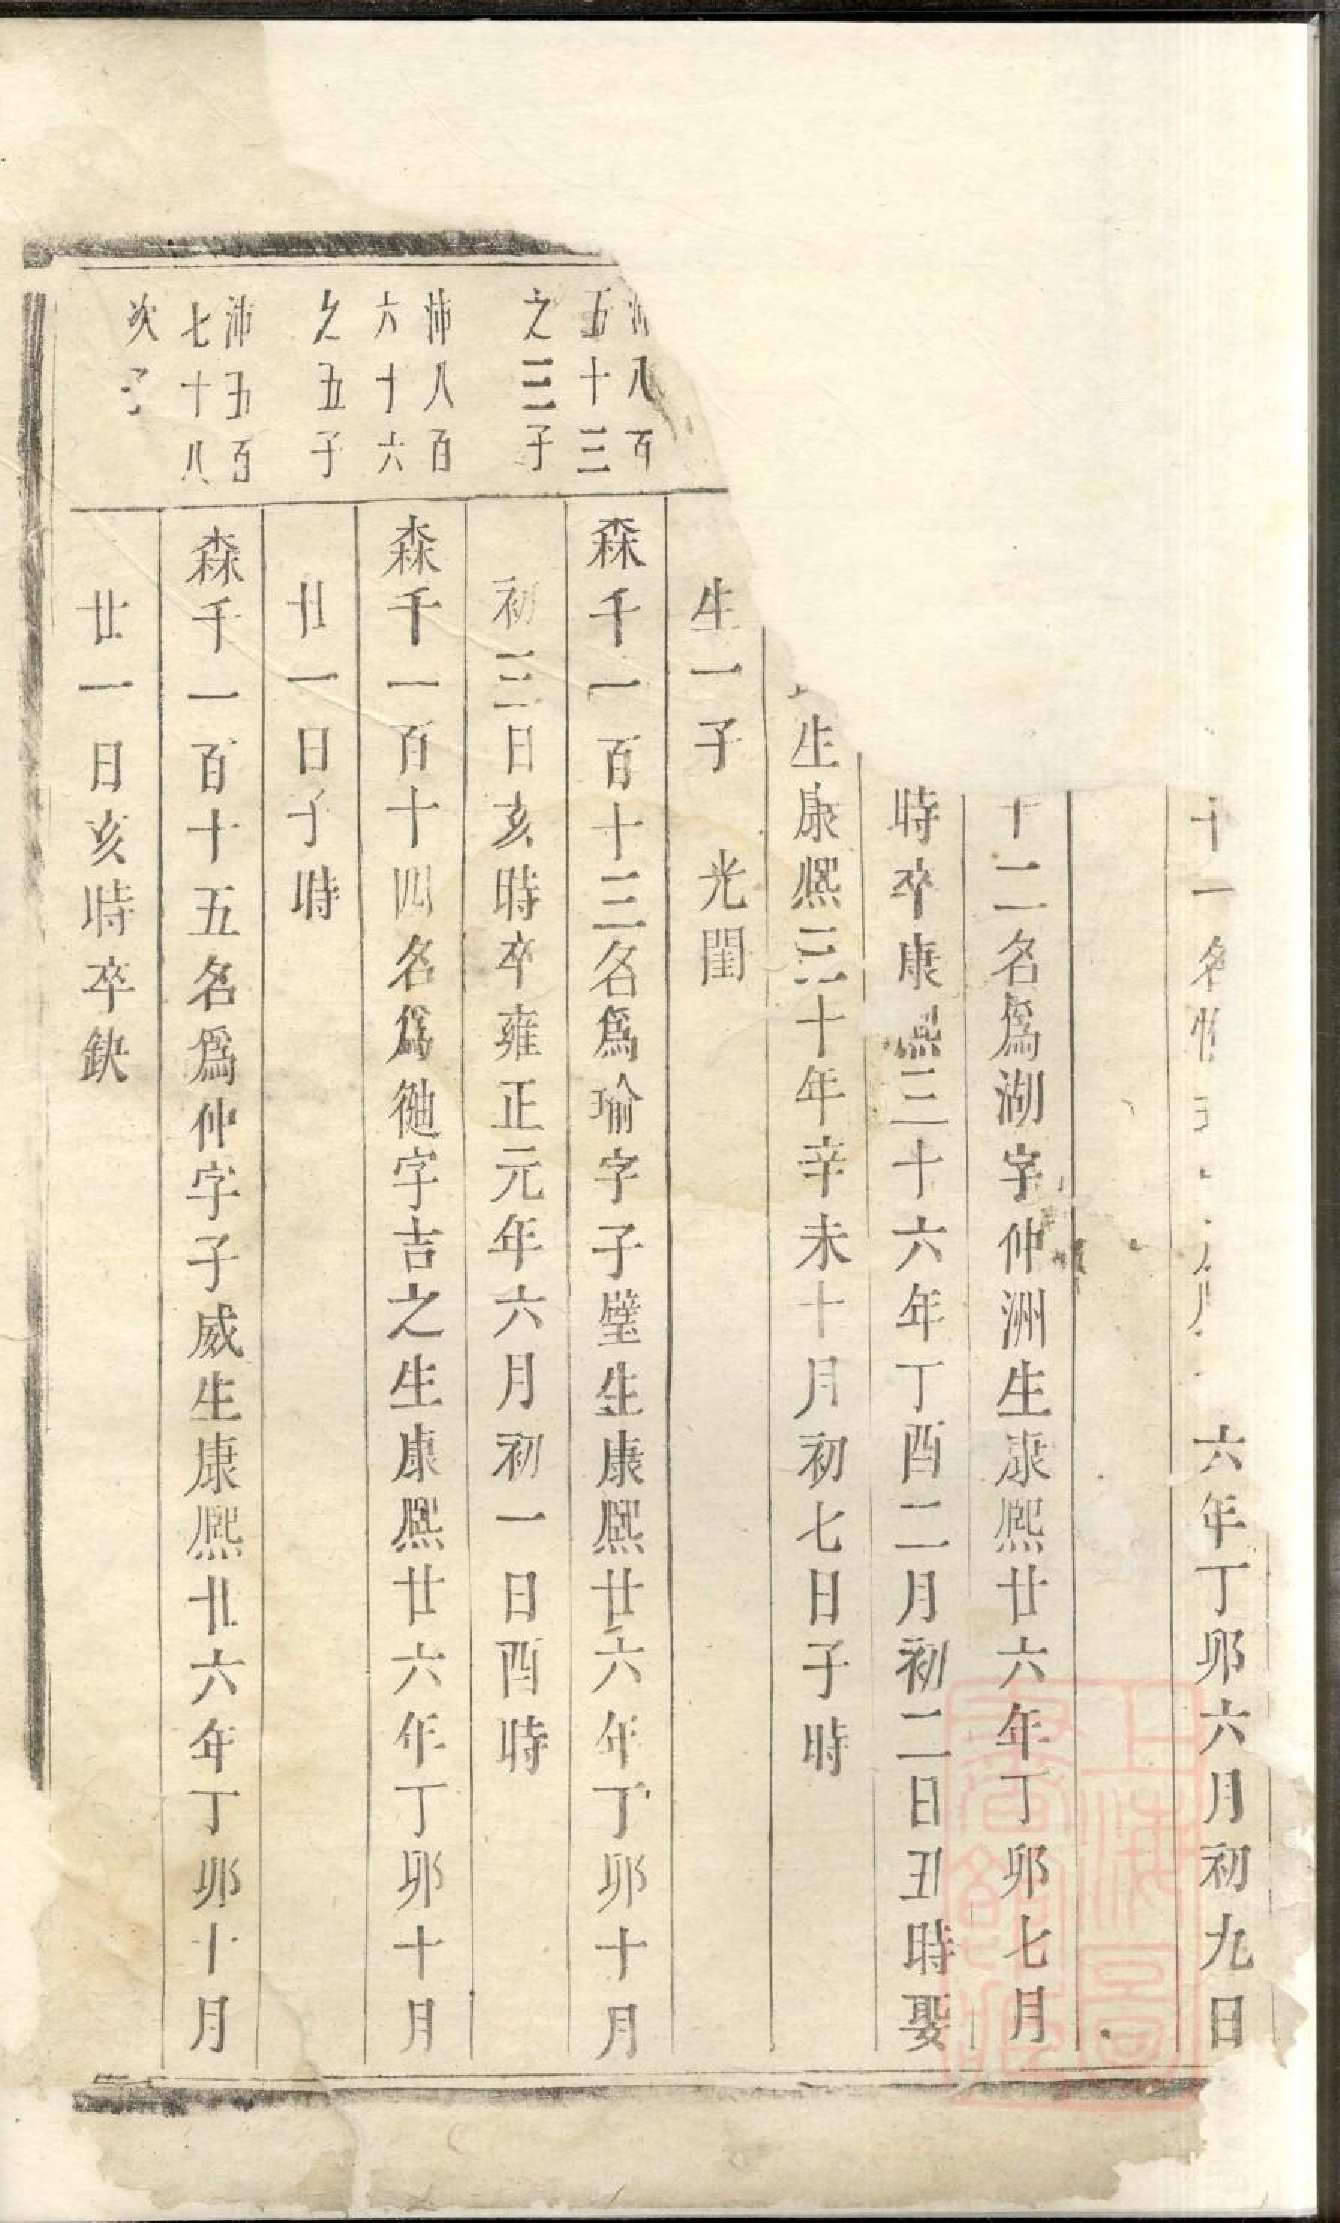 十一名
六年丁卯六月初九日
十二名爲湖字仲洲生康熙廿六年丁卯七月
時卒康熙三十六年丁酉二月初二日丑時娶
生康熙三十年辛未十月初七日子時
生一子　光閏
八百
五十三
之三子
森千一百十三名爲瑜字子璧生康熙廿六年丁卯十月
初三日亥時卒雍正元年六月初一日酉時
沛八百
六十六
之五子
森千一百十四名爲字吉之生康熙廿六年丁卯十月
廿一日子時
沛五百
七十八
次子
森千一百十五名爲仲字子威生康熙廿六年丁卯十月
廿一日亥時卒缺
上海圖
書館藏